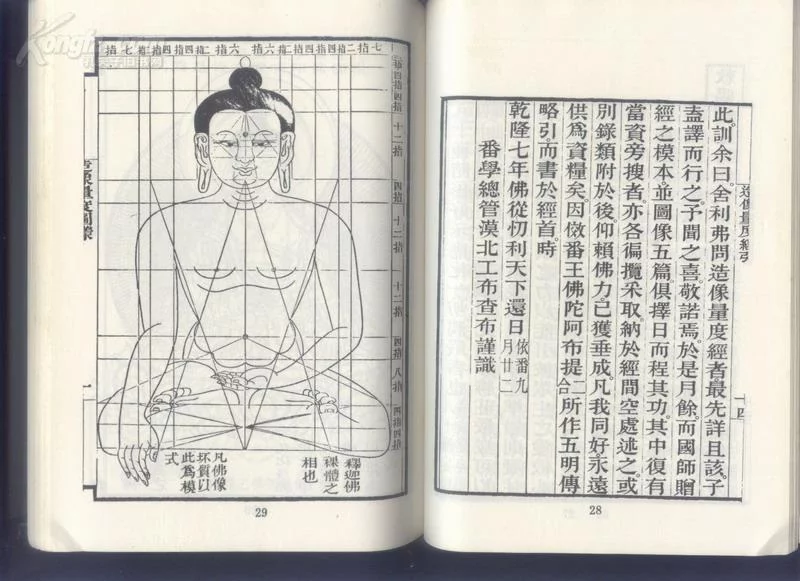 造像量度經引
十四
此訓余曰。舍利弗問造像量度經者最先詳且該。子
盍譯而行之。予聞之喜。敬諾焉。於是月餘。而國師贈
經之模本並圖像五篇俱。擇日而程其功。其中復有
當資旁搜者。亦各徧攬采取。納於經間空處述之。或
別錄類附於後。仰賴佛力。已獲垂成。凡我同好。永遠
供爲資糧矣。因倣番王佛陀阿布提二合所作五明傳
略引而書於經首。時
乾隆七年佛從忉利天下還日依番九月廿二
番學總管漠北工布查布謹識
28
七指二指四指四指二指六指六指二指四指四指二指七指
四指
四指
十二指
四指
十二指
十二指
四指
八指
四指
四指
釋迦佛
裸體之
相也
凡佛像
坯質以
此爲模
式
一
29
孔夫子旧书网